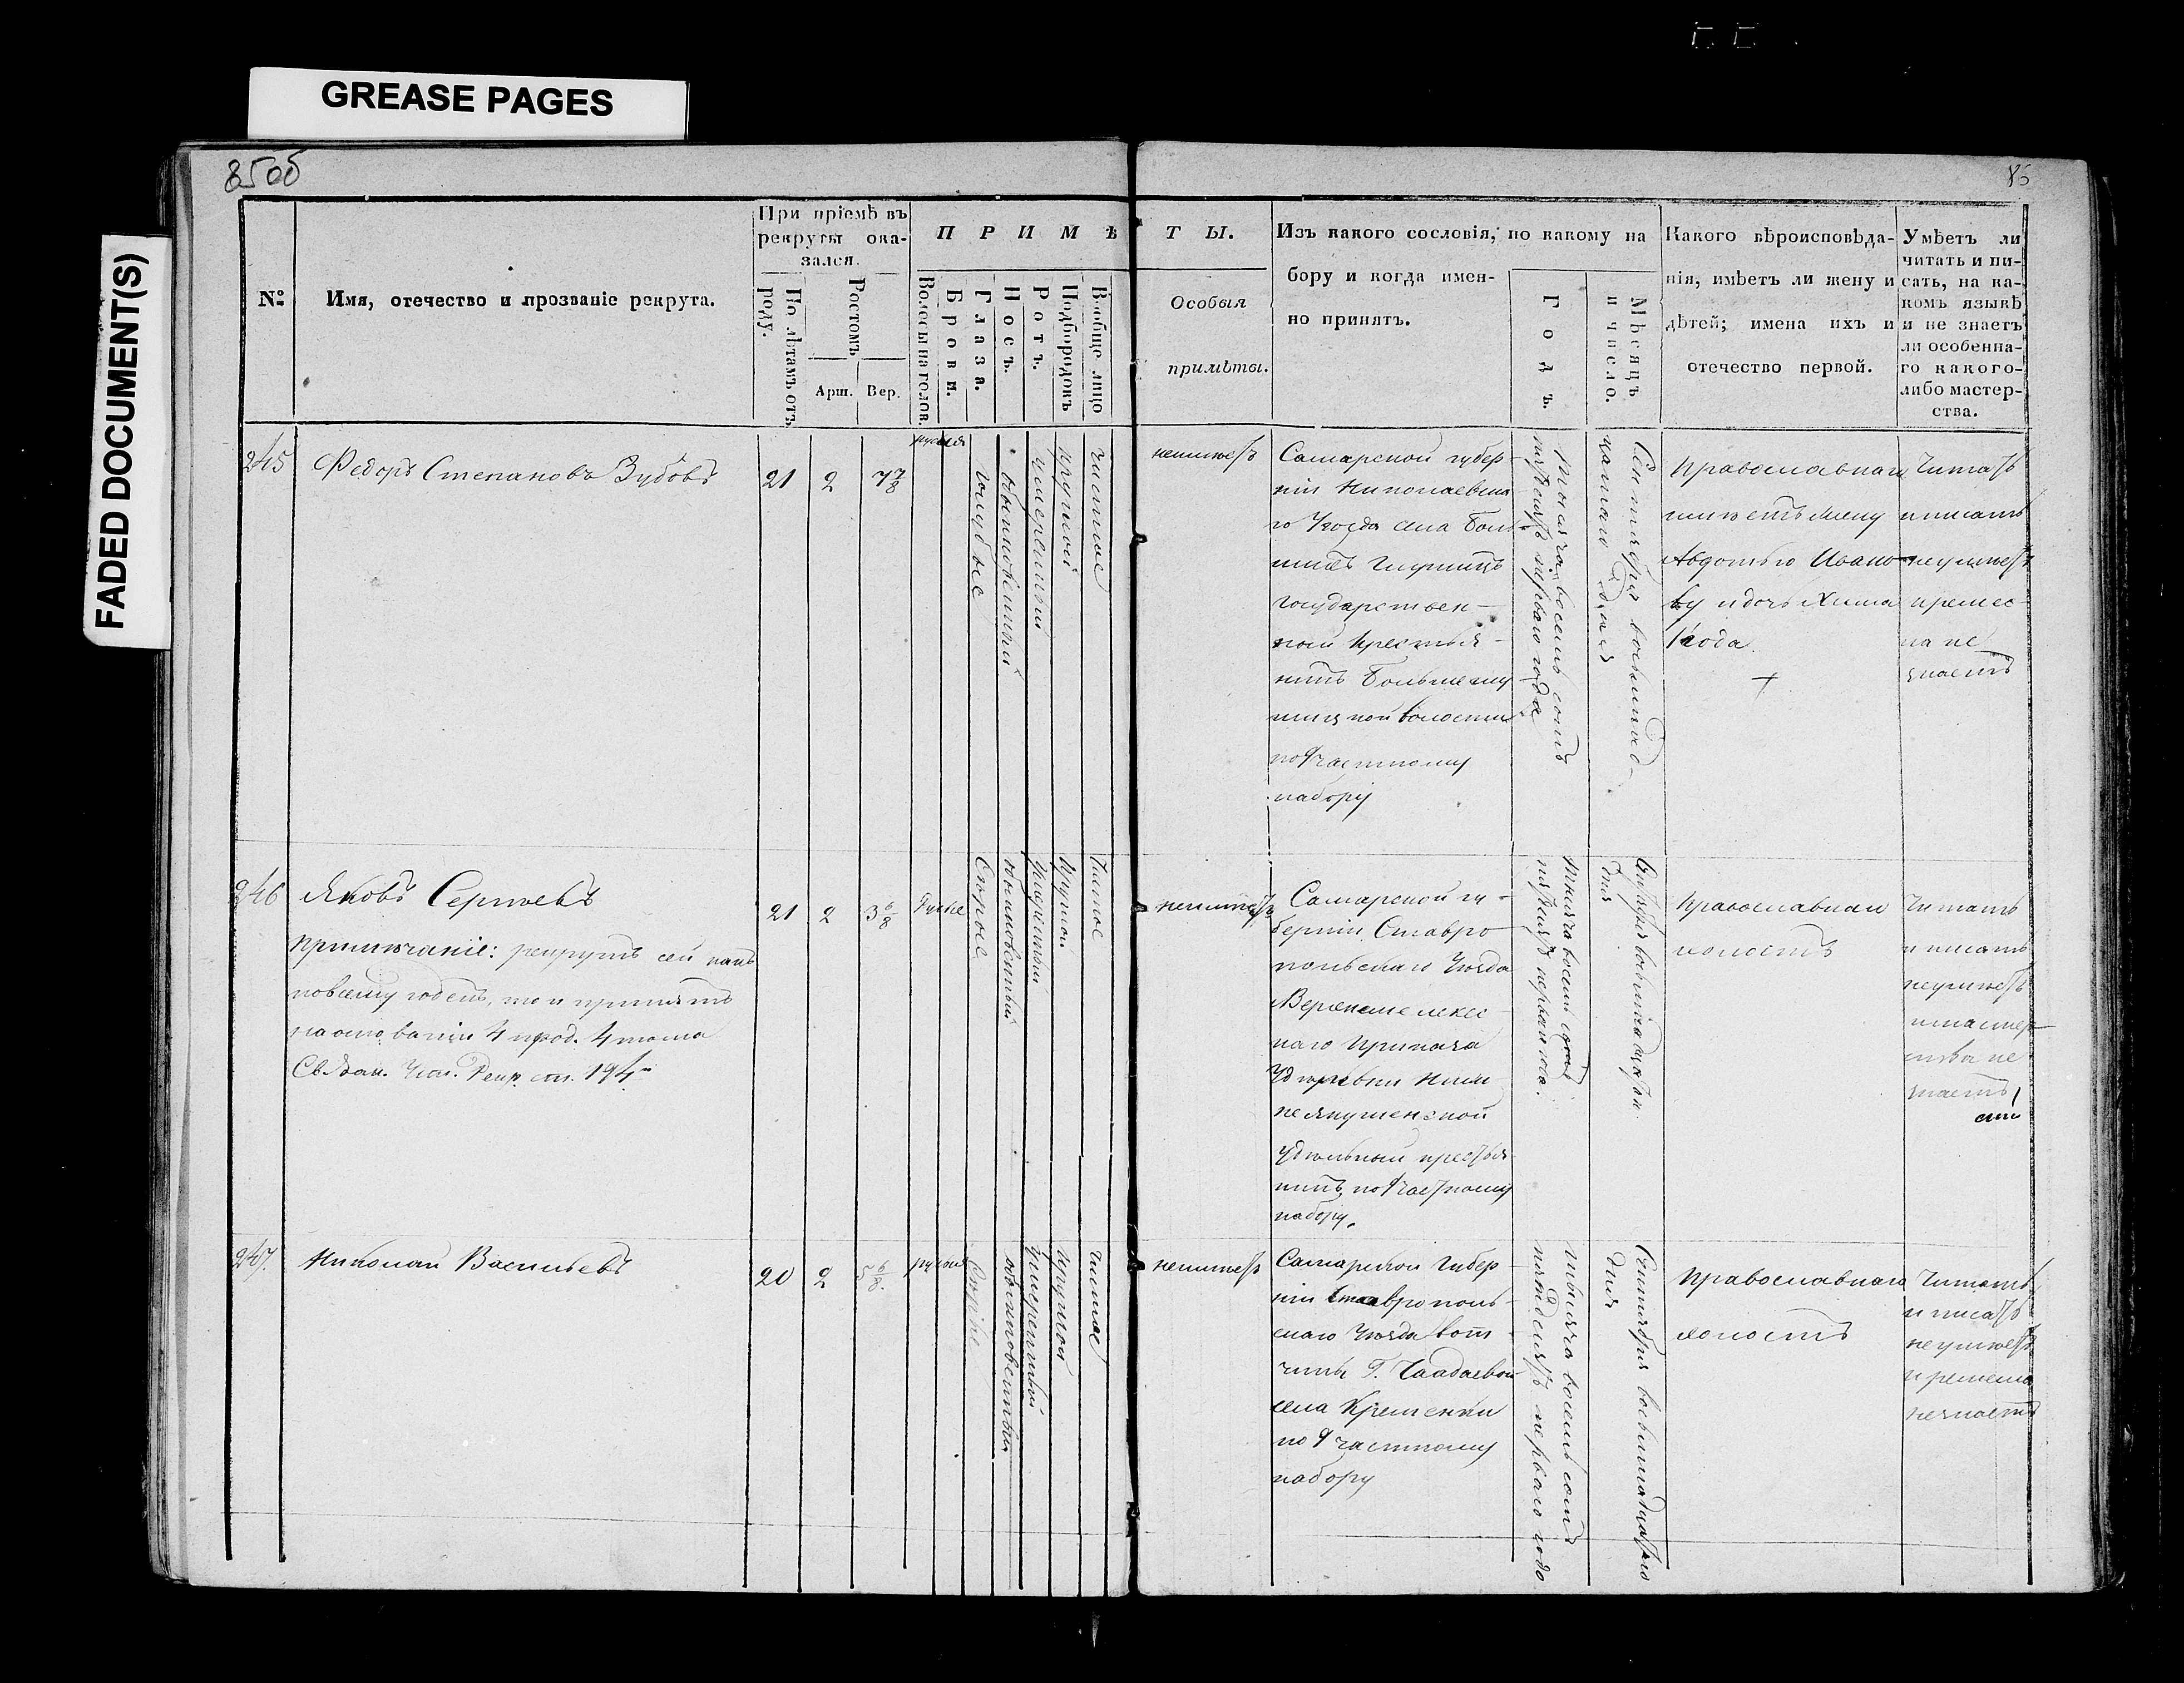 GREASE PAGES
FADED DOCUMENT(S)
85об
86
№
Имя, отечество и прозваніе рекрута.
При пріемѣ въ
рекруты ока-
зался.
По лѣтамъ отъ
роду.
Ростомъ
Арш.
Вер.
ПРИМѢ
ТЫ.
Волосы на голов.
Брови.
Глаза.
Носъ.
Ротъ.
Подбородокъ
Вообще лицо
Особыя
примѣты.
Изъ какого сословія, по какому на
бору и когда имен-
но принятъ.
Годъ.
Мѣсяцъ
и число.
Какого вѣроисповѣда-
нія, имѣетъ ли жену и
дѣтей; имена ихъ и
отечество первой.
Умѣетъ ли
читать и пи-
сать, на ка-
комъ языкѣ
и не знаетъ
ли особенна-
го какого-
либо мастер-
ства.
245
Федоръ Степановъ Зубовъ
21
2
7 7/8
русыя
голубые
обыкновенный
умеренный
круглой
чистое
неимѣетъ
Самарской губер-
ніи Николаевска
го Уѣзда села Боль-
шихъ Глушицъ
государствен-
ной крестья-
нинъ Большеглу
шицкой волости
по 9 частному
набору
Тысяча восемь сотъ
пятьдесятъ перваго года
Сентября восьмнад-
цатаго дня
Православнаго
имѣетъ жену
Авдотью Ивано-
ву и дочь
1 года
Читать
и писать
неумѣетъ
и ремес-
ла не
знаетъ
246
Яковъ Сергѣевъ
Примѣчаніе: рекрутъ сей какъ
повсему годенъ, то и принятъ
на основаніи 4 прод. 4 тома
Св. Зак. Уст. Рекр. ст. 194й
21
2
3 6/8
Русые
Серые
обыкновенный
умеренный
круглой
чистое
неимѣетъ
Самарской гу-
берніи Ставро
польскаго Уѣзда
наго Приказа
деревни Ниж
неякушенской
удѣльный крестья-
нинъ по 9 частному
набору.
Тысяча восемь сотъ
Сентября восьмнадцатаго
дня
Православнаго
холостъ
Читать
и писать
неумѣетъ
и мастер-
ства не
знаетъ
247.
Николай Васильевъ
20
2
5 6/8.
русыя
Серые
обыкновенный
умеренный
круглой
чистое
неимѣетъ
Самарской Губер-
ніи Ставрополь-
скаго Уѣзда вот
чины Г. Чаадаевой
села Кременки
по 9 частному
набору
тысяча восемь сотъ
пятьдесятъ перваго года
Сентября восьмнадцатаго
дня
Православнаго
холостъ
Читать
и писать
неумѣетъ
и ремесла
незнаетъ